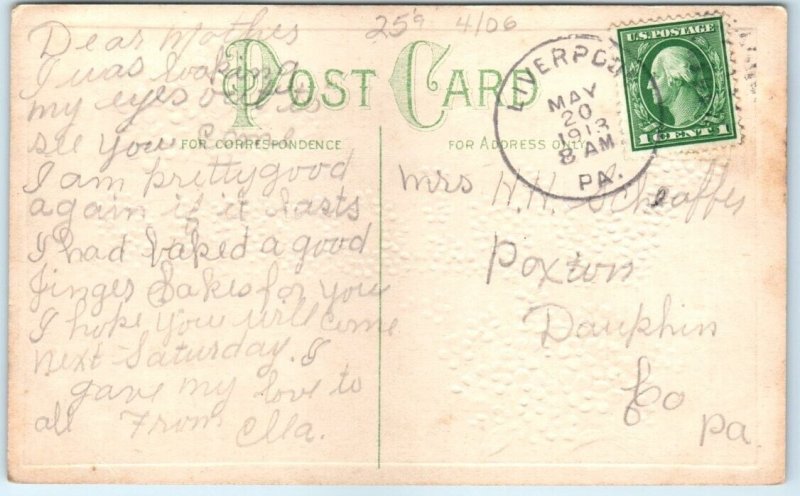 25¢ 4/06
POST CARD
FOR CORRESPONDENCE
FOR ADDRESS ONLY
U.S. POSTAGE
1 CENT 1
LIVERPOOL
MAY
20
1913
8 AM
PA.
Dear Mother
I was looking
my eyes out to
see you come
I am pretty good
again if it lasts
I had baked a good
Jinger Cakes for you
I hope you will come
next Saturday. I
gave my love to
all From Ella.
Mrs H. H. Schaffer
Poxton
Dauphin
Co
Pa